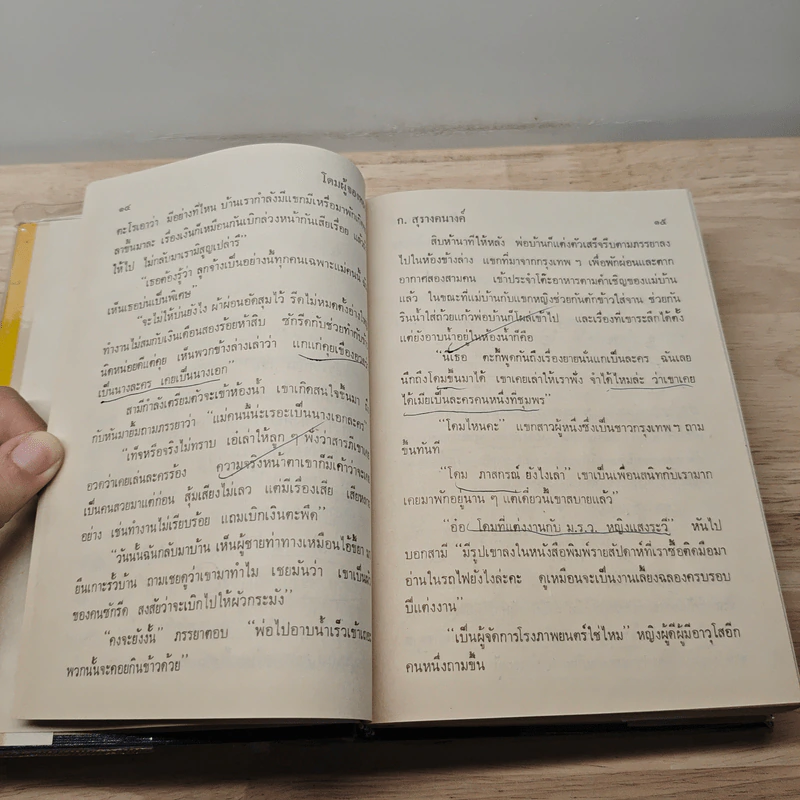 ๑๔
โดมผู้จอง
คะไรเอาว่า มีอย่างที่ไหน บ้านเรากำลังมีแขกมีเหรื่อมาพัก
ลาขึ้นมาละ เรื่องเงินก็เหมือนกันเบิกล่วงหน้ากันเสียเรื่อย
ให้ไป ไม่กลับมาเรามิสูญเปล่ารึ”
“เธอต้องรู้ว่า ลูกจ้างเป็นอย่างนี้ทุกคนเฉพาะแม่คนนี้
เห็นเธอบ่นเป็นพิเศษ”
“จะไม่ให้บ่นยังไง ผ้าผ่อนอดสุมไว้ รีดไม่หมดตั้งอย่าง
ทำงานไม่สมกับเงินเดือนสองร้อยห้าสิบ ซักรีดกับช่วยทำกับ
นิดหน่อยดีแต่คุย เห็นพวกข้างล่างเล่าว่า แกแก่คุยเขื่อง
เป็นนางละคร เคยเป็นนางเอก”
สามีกำลังเตรียมตัวจะเข้าห้องน้ำ เขาเกิดสนใจขึ้นมา
กับหันมายิ้มถามภรรยาว่า “แม่คนนี้น่ะเรอะเป็นนางเอกละคร”
“เท็จหรือจริงไม่ทราบ เอ๋เล่าให้ลูก ๆ ฟังว่าสารภีเขา
อวดว่าเคยเล่นละครร้อง ความจริงหน้าตาเขาก็มีเค้าว่าจะ
เป็นคนสวยมาแต่ก่อน สุ้มเสียงไม่เลว แต่มีเรื่องเสีย เสียหลาย
อย่าง เช่นทำงานไม่เรียบร้อย แถมเบิกเงินตะพึด”
“วันนั้นฉันกลับมาบ้าน เห็นผู้ชายท่าทางเหมือนไอ้ขี้ยา มา
ยืนเกาะรั้วบ้าน ถามเชยดูว่าเขามาทำไม เชยมันว่า เขาเป็น
ของคนซักรีด สงสัยว่าจะเบิกไปให้ผัวกระมัง”
“คงจะยังงั้น” ภรรยาตอบ “พ่อไปอาบน้ำเร็วเข้าเถอะ
พวกนั้นจะคอยกินข้าวด้วย”
ก. สุรางคนางค์
๑๕
สิบห้านาทีให้หลัง พ่อบ้านก็แต่งตัวเสร็จรีบตามภรรยาลง
ไปในห้องข้างล่าง แขกที่มาจากกรุงเทพ ฯ เพื่อพักผ่อนและตาก
อากาศสองสามคน เข้าประจำโต๊ะอาหารตามคำเชิญของแม่บ้าน
แล้ว ในขณะที่แม่บ้านกับแขกหญิงช่วยกันตักข้าวใส่จาน ช่วยกัน
รินน้ำใส่ถ้วยแก้วพ่อบ้านก็โผล่เข้าไป และเรื่องที่เขาระลึกได้ตั้ง
แต่ยังอาบน้ำอยู่ในห้องน้ำก็คือ
“นี่เธอ ตะกี้พูดกันถึงเรื่องยายนั่นแกเป็นละคร ฉันเลย
นึกถึงโดมขึ้นมาได้ เขาเคยเล่าให้เราฟัง จำได้ไหมล่ะ ว่าเขาเคย
ได้เมียเป็นละครคนหนึ่งที่ชุมพร”
“โดมไหนคะ” แขกสาวผู้หนึ่งซึ่งเป็นชาวกรุงเทพ ฯ ถาม
ขึ้นทันที
“โดม ภาสกรณ์ ยังไงเล่า” เขาเป็นเพื่อนสนิทกับเรามาก
เคยมาพักอยู่นาน ๆ แต่เดี๋ยวนี้เขาสบายแล้ว”
“อ๋อ โดมที่แต่งงานกับ ม.ร.ว. หญิงแสงระวี” หันไป
บอกสามี “มีรูปเขาลงในหนังสือพิมพ์รายสัปดาห์ที่เราซื้อติดมือมา
อ่านในรถไฟยังไงล่ะคะ ดูเหมือนจะเป็นงานเลี้ยงฉลองครบรอบ
ปีแต่งงาน”
“เป็นผู้จัดการโรงภาพยนตร์ใช่ไหม” หญิงผู้ดีผู้มีอาวุโสอีก
คนหนึ่งถามขึ้น